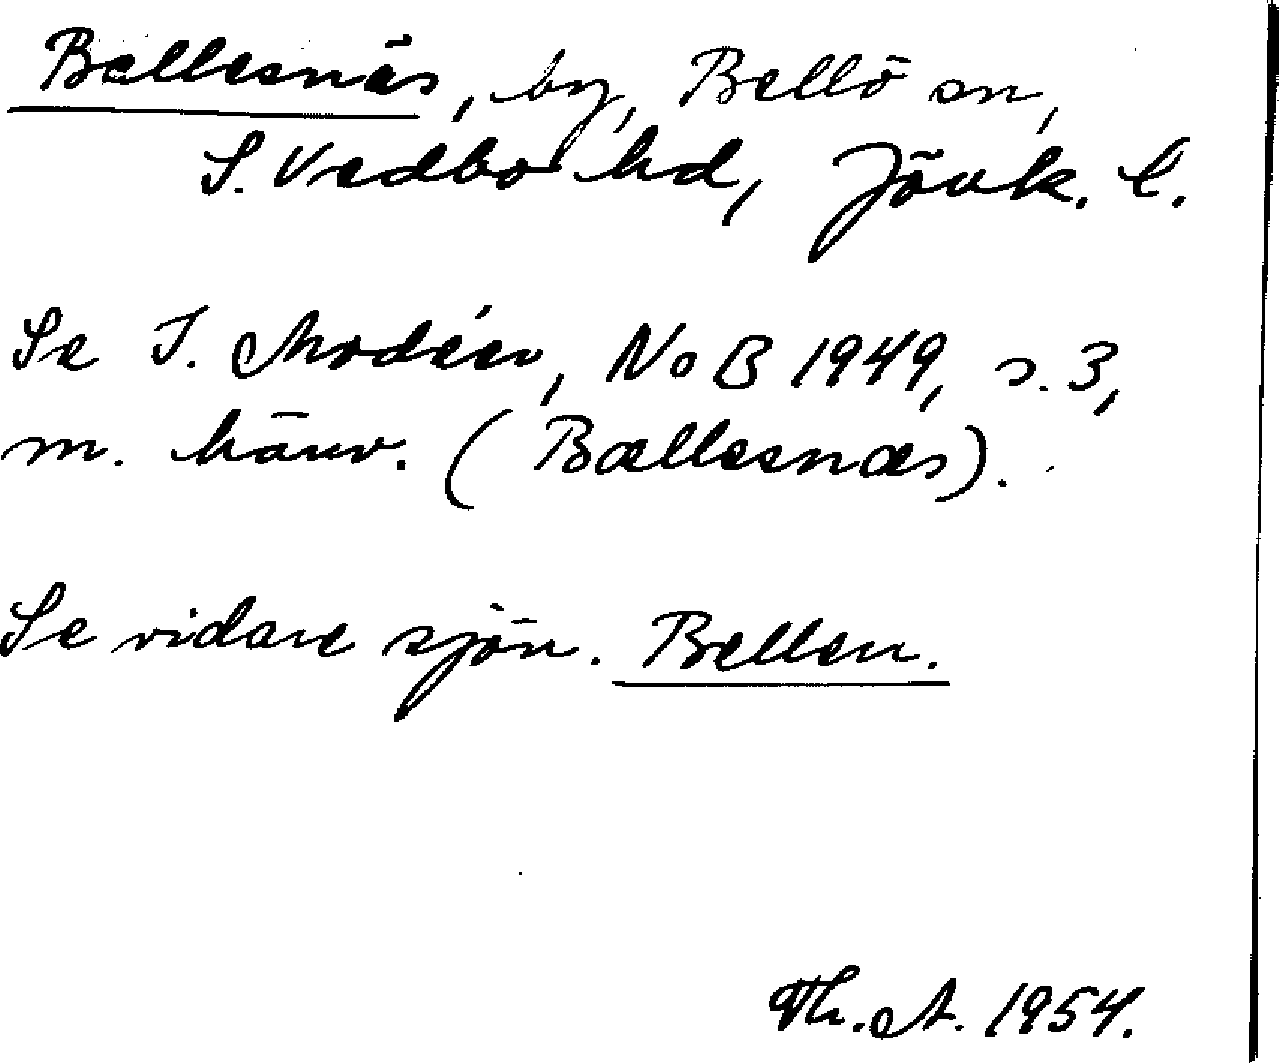 Bellesnäs, by, Bellö sn,
S. Vedbo hd, Jönk. l.
Se I. Modéer, NoB 1949, s. 3,
m. hänv. (Bællesnæs).
Se vidare sjön. Bellen.
Th. A. 1954.